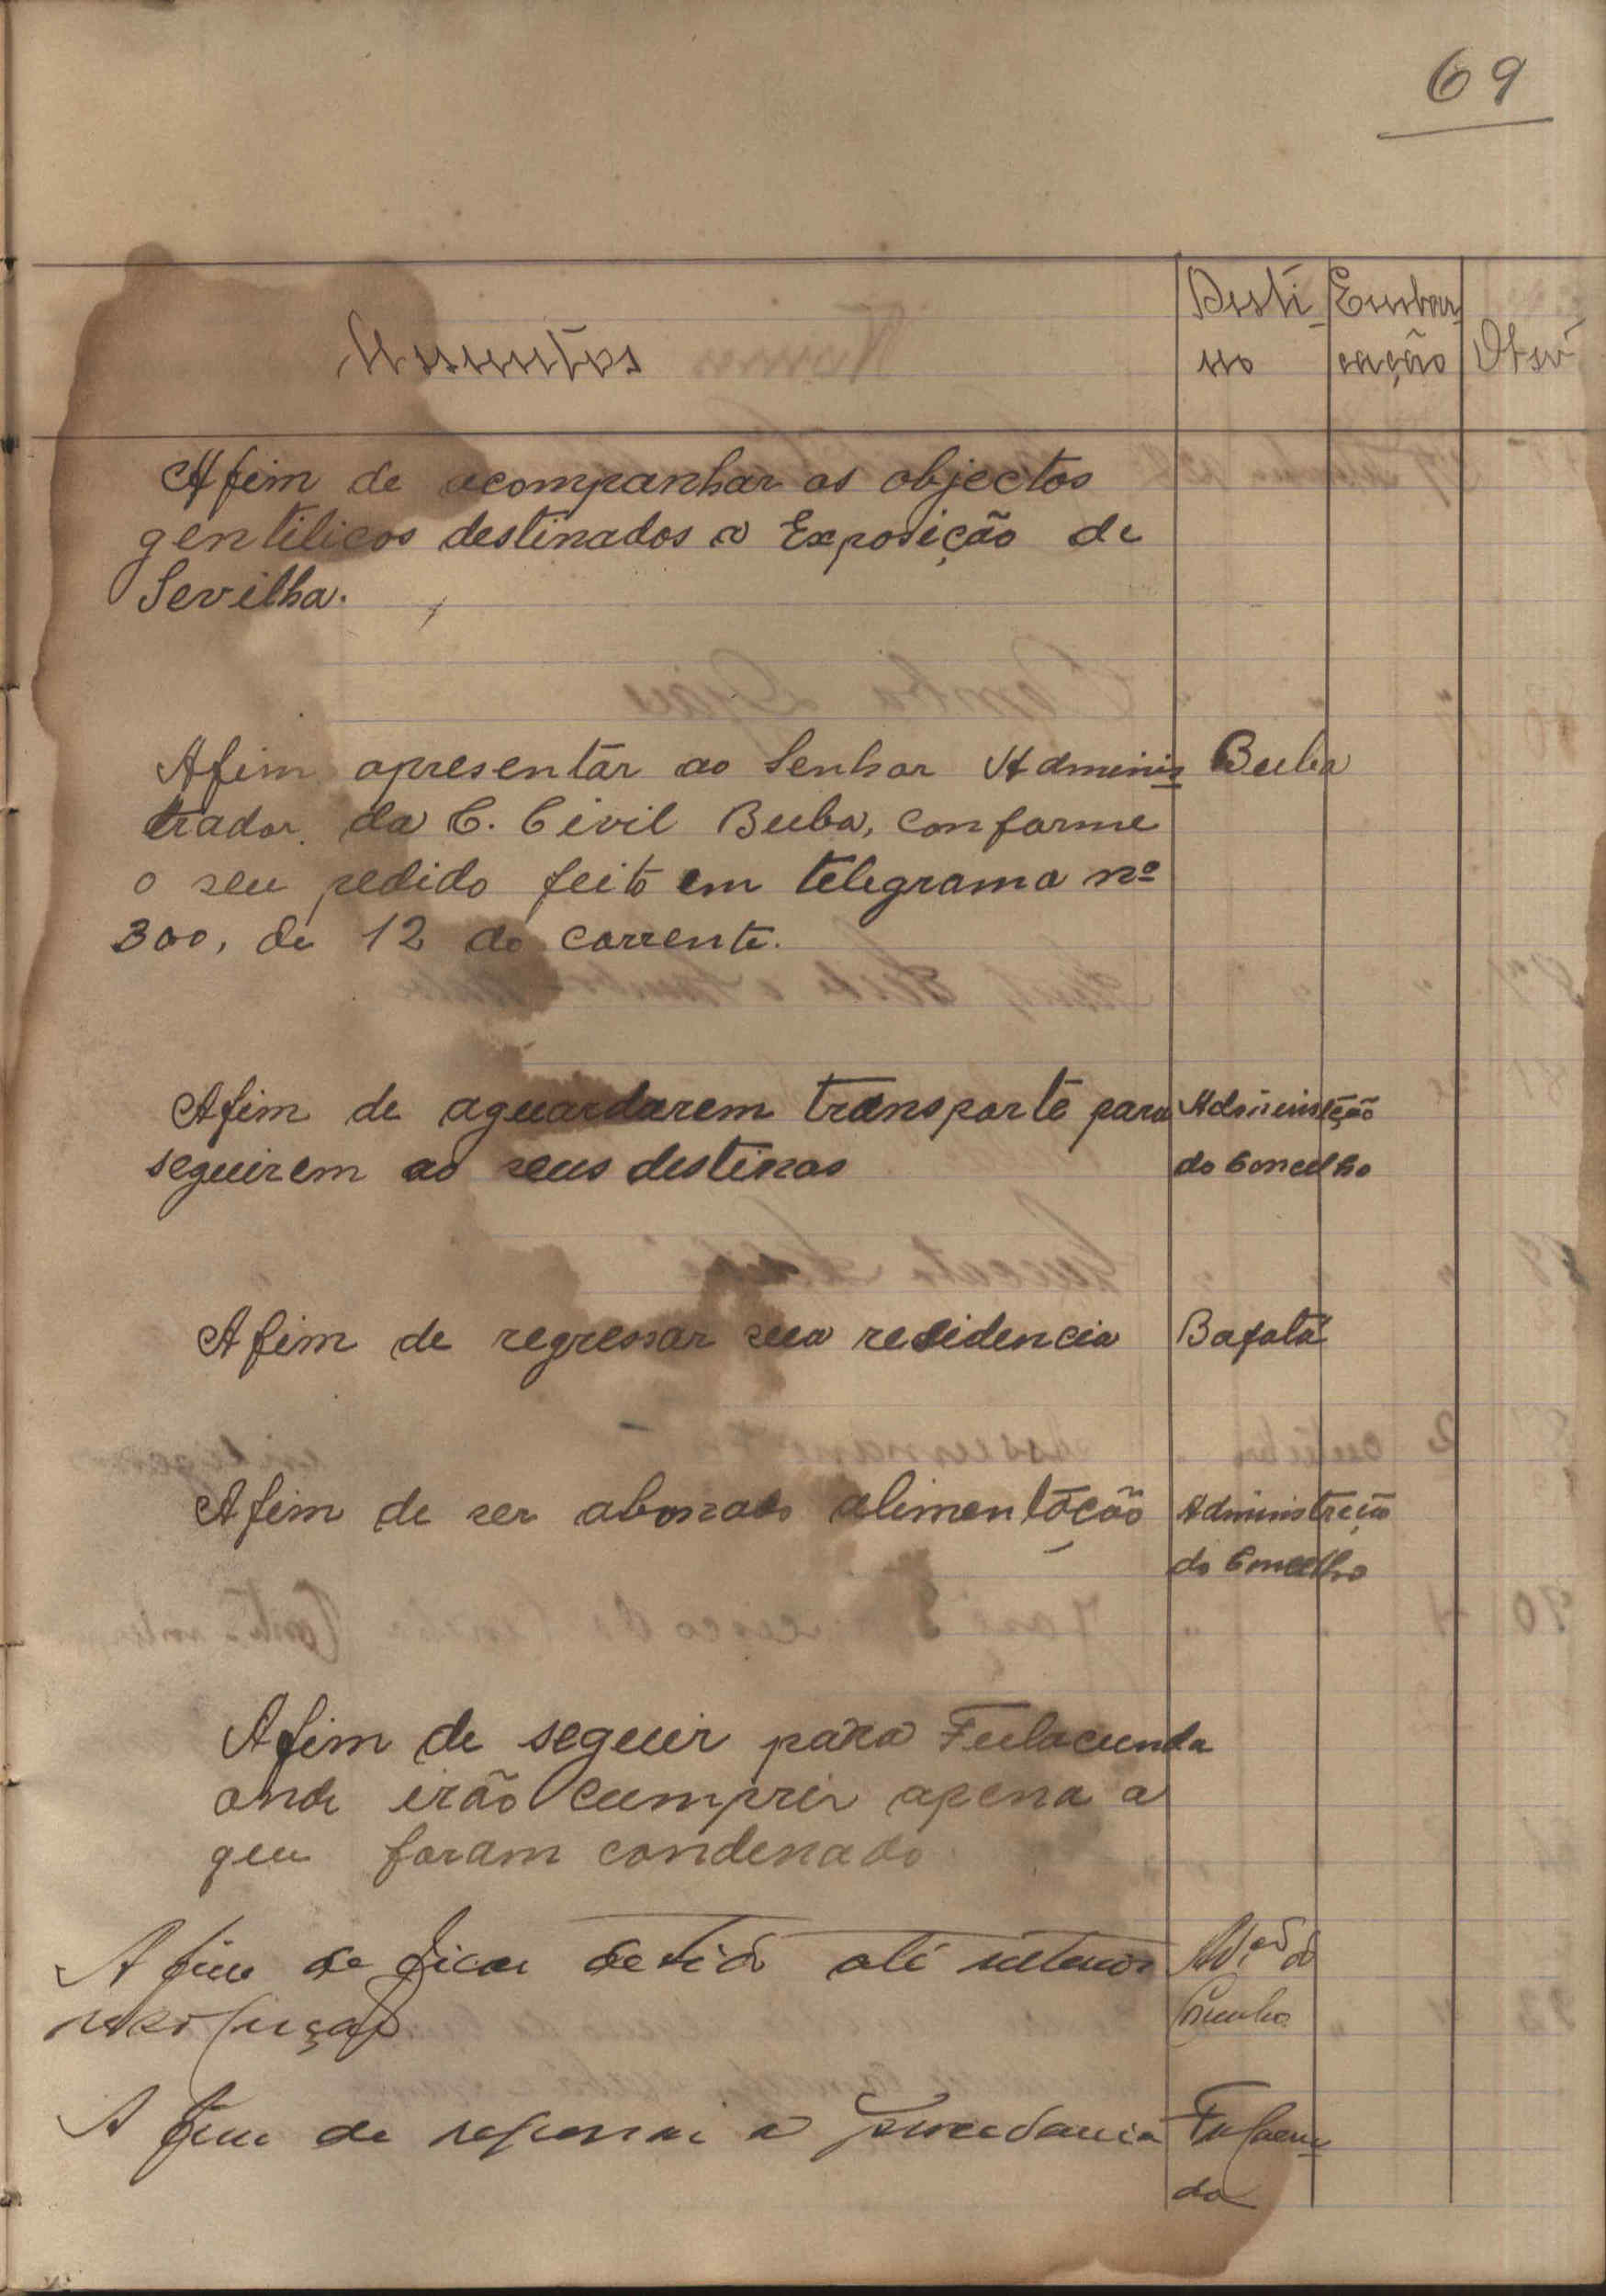 69
Assuntos
Desti-
no
Embar-
cação
Obsv
Afim de acompanhar os objectos
gentilicos destinados a Exposição de
Sevilha.
Afim apresentar ao Senhor Adminis- Buba
trador da C. Civil Buba, conforme
o seu pedido feito em telegrama nº
300, de 12 do corrente.
Afim de aguardarem transporte para
seguirem ao seus destinos
Administção
do Concelho
Afim de regressar sua residencia Bafatá
Afim de ser abonado alimentação
Administreção
do Concelho
Afim de seguir para Fulacunda
onde irão cumprir apena a
que foram condenado
A fim de ficar detido até ulterior
resolução
Ad.ção do
Concelho
A fim de regressar a procedencia
Fulacun-
da